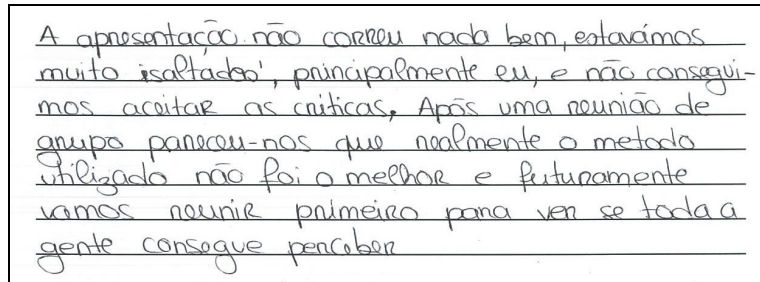 A apresentação não correu nada bem, estavámos
muito 'isaltados', principalmente eu, e não consegui-
mos aceitar as criticas. Após uma reunião de
grupo pareceu-nos que realmente o metodo
utilizado não foi o melhor e futuramente
vamos reunir primeiro para ver se toda a
gente consegue perceber